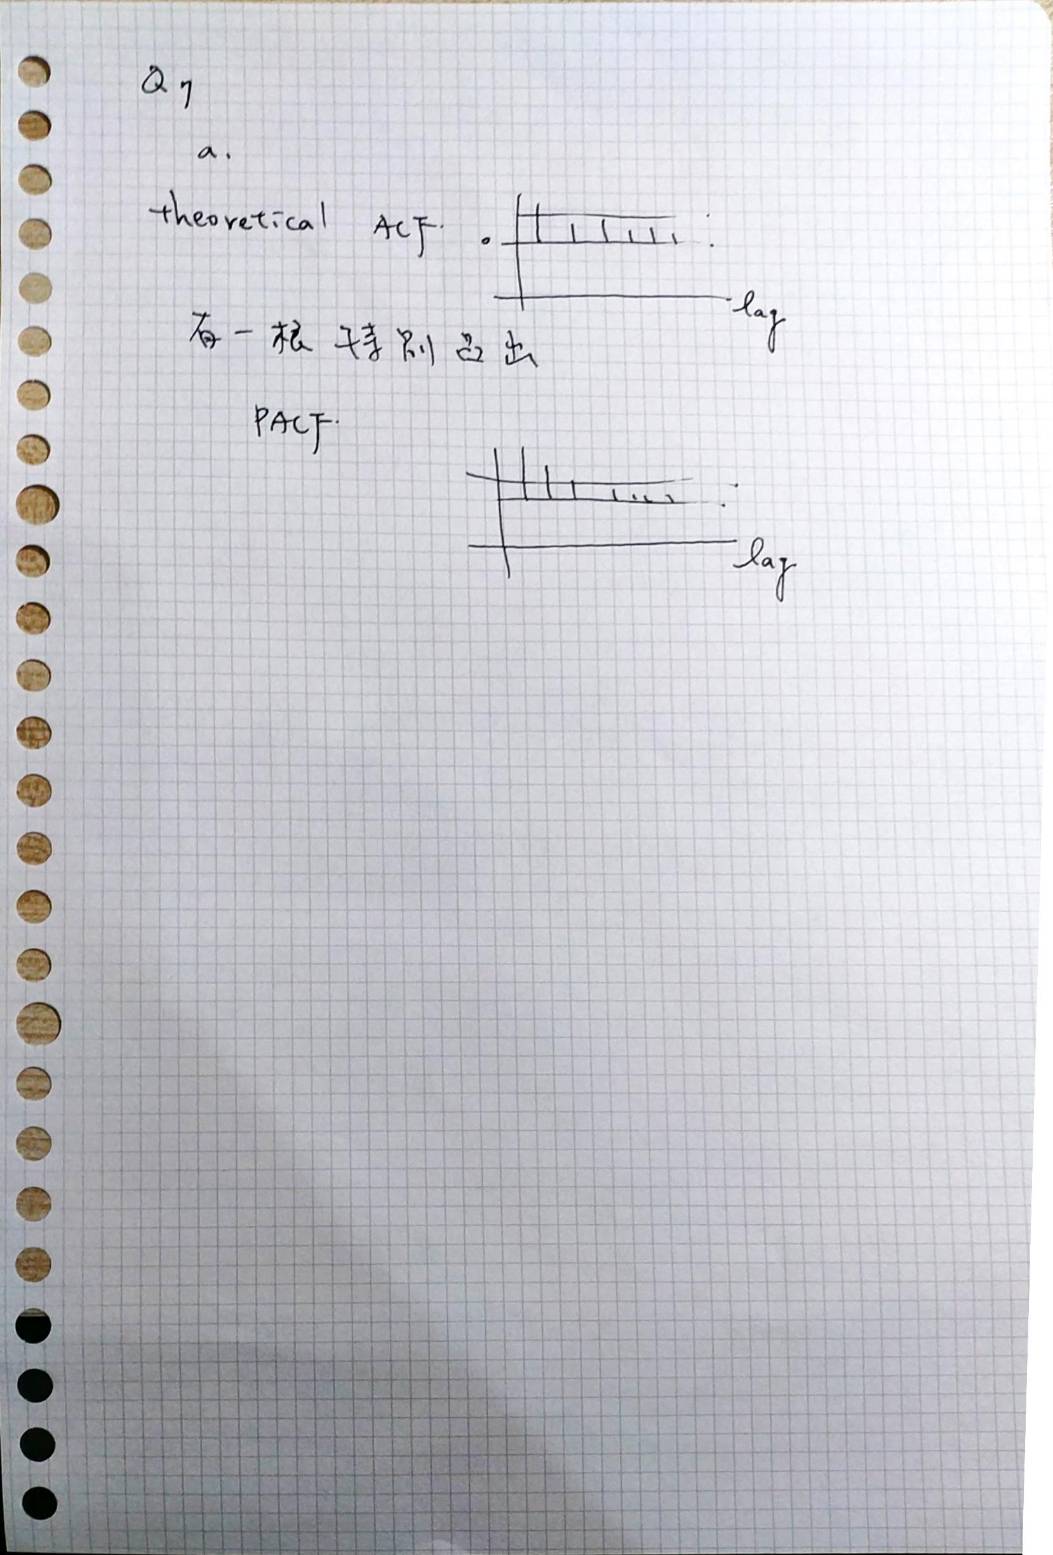 Q7
a.
theoretical ACF. 0
lag
有一根特别凸出
PACF.
lag